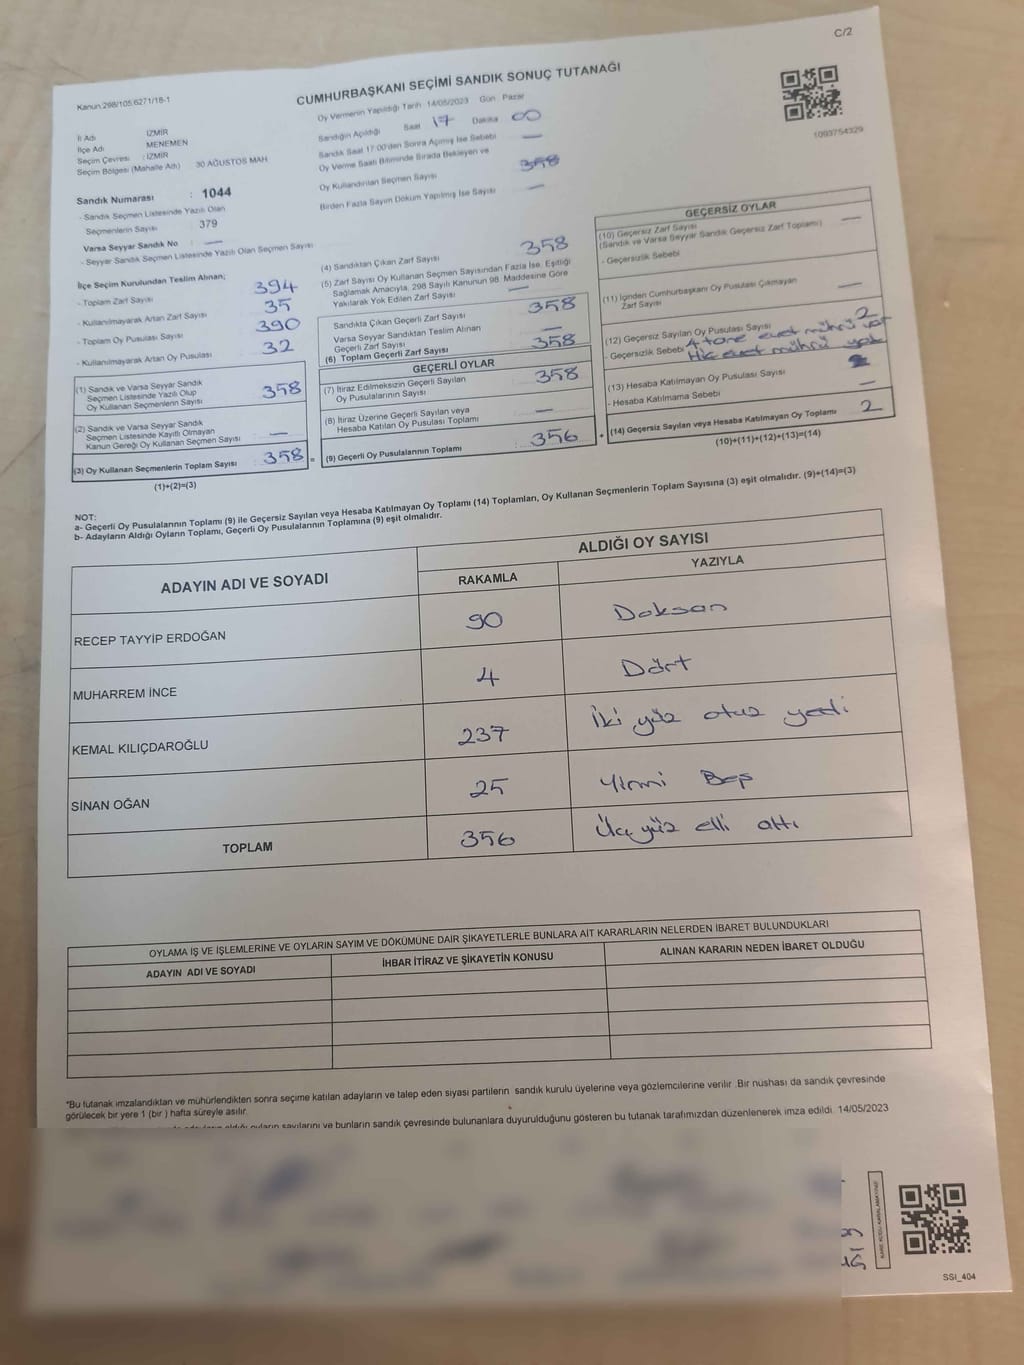 C/2
Kanun.298/105.6271/18-1
CUMHURBAŞKANI SEÇİMİ SANDIK SONUÇ TUTANAĞI
1093754329
İl Adı İZMİR
İlçe Adı MENEMEN
Seçim Çevresi : İZMİR
Seçim Bölgesi (Mahalle Adı) 30 AĞUSTOS MAH
Sandık Numarası : 1044
- Sandık Seçmen Listesinde Yazılı Olan
Seçmenlerin Sayısı : 379
Varsa Seyyar Sandık No : —
- Seyyar Sandık Seçmen Listesinde Yazılı Olan Seçmen Sayısı
Oy Vermenin Yapıldığı Tarih 14/05/2023 Gün Pazar
Sandığın Açıldığı Saat 17 Dakika 00
Sandık Saat 17:00'den Sonra Açılmış İse Sebebi —
Oy Verme Saati Bitiminde Sırada Bekleyen ve
Oy Kullandırılan Seçmen Sayısı 358
Birden Fazla Sayım Döküm Yapılmış İse Sayısı —
İlçe Seçim Kurulundan Teslim Alınan;
- Toplam Zarf Sayısı 394
- Kullanılmayarak Artan Zarf Sayısı 35
- Toplam Oy Pusulası Sayısı 390
- Kullanılmayarak Artan Oy Pusulası 32
(1) Sandık ve Varsa Seyyar Sandık
Seçmen Listesinde Yazılı Olup
Oy Kullanan Seçmenlerin Sayısı : 358
(2) Sandık ve Varsa Seyyar Sandık
Seçmen Listesinde Kayıtlı Olmayan
Kanun Gereği Oy Kullanan Seçmen Sayısı : —
(3) Oy Kullanan Seçmenlerin Toplam Sayısı : 358 =
(1)+(2)=(3)
(4) Sandıktan Çıkan Zarf Sayısı 358
(5) Zarf Sayısı Oy Kullanan Seçmen Sayısından Fazla İse, Eşitliği
Sağlamak Amacıyla, 298 Sayılı Kanunun 98. Maddesine Göre
Yakılarak Yok Edilen Zarf Sayısı —
Sandıkta Çıkan Geçerli Zarf Sayısı : 358
Varsa Seyyar Sandıktan Teslim Alınan
Geçerli Zarf Sayısı —
(6) Toplam Geçerli Zarf Sayısı : 358
GEÇERLİ OYLAR
(7) İtiraz Edilmeksizin Geçerli Sayılan
Oy Pusulalarının Sayısı : 358
(8) İtiraz Üzerine Geçerli Sayılan veya
Hesaba Katılan Oy Pusulası Toplamı : —
(9) Geçerli Oy Pusulalarının Toplamı : 356 +
GEÇERSİZ OYLAR
(10) Geçersiz Zarf Sayısı
(Sandık ve Varsa Seyyar Sandık Geçersiz Zarf Toplamı) —
- Geçersizlik Sebebi
(11) İçinden Cumhurbaşkanı Oy Pusulası Çıkmayan
Zarf Sayısı —
(12) Geçersiz Sayılan Oy Pusulası Sayısı 2
- Geçersizlik Sebebi 4 tane evet mührü var
Hiç evet mührü yok
(13) Hesaba Katılmayan Oy Pusulası Sayısı
- Hesaba Katılmama Sebebi —
(14) Geçersiz Sayılan veya Hesaba Katılmayan Oy Toplamı 2
(10)+(11)+(12)+(13)=(14)
NOT:
a- Geçerli Oy Pusulalarının Toplamı (9) ile Geçersiz Sayılan veya Hesaba Katılmayan Oy Toplamı (14) Toplamları, Oy Kullanan Seçmenlerin Toplam Sayısına (3) eşit olmalıdır. (9)+(14)=(3)
b- Adayların Aldığı Oyların Toplamı, Geçerli Oy Pusulalarının Toplamına (9) eşit olmalıdır.
ADAYIN ADI VE SOYADI ALDIĞI OY SAYISI
RAKAMLA YAZIYLA
RECEP TAYYİP ERDOĞAN 90 Doksan
MUHARREM İNCE 4 Dört
KEMAL KILIÇDAROĞLU 237 İki yüz otuz yedi
SİNAN OĞAN 25 Yirmi Beş
TOPLAM 356 Üç yüz elli altı
OYLAMA İŞ VE İŞLEMLERİNE VE OYLARIN SAYIM VE DÖKÜMÜNE DAİR ŞİKAYETLERLE BUNLARA AİT KARARLARIN NELERDEN İBARET BULUNDUKLARI
ADAYIN ADI VE SOYADI İHBAR İTİRAZ VE ŞİKAYETİN KONUSU ALINAN KARARIN NEDEN İBARET OLDUĞU
*Bu tutanak imzalandıktan ve mühürlendikten sonra seçime katılan adayların ve talep eden siyasi partilerin sandık kurulu üyelerine veya gözlemcilerine verilir. Bir nüshası da sandık çevresinde
görülecek bir yere 1 (bir ) hafta süreyle asılır.
oyların sayılarını ve bunların sandık çevresinde bulunanlara duyurulduğunu gösteren bu tutanak tarafımızdan düzenlenerek imza edildi. 14/05/2023
KARE KODU KARALAMAYINIZ
SSI_404